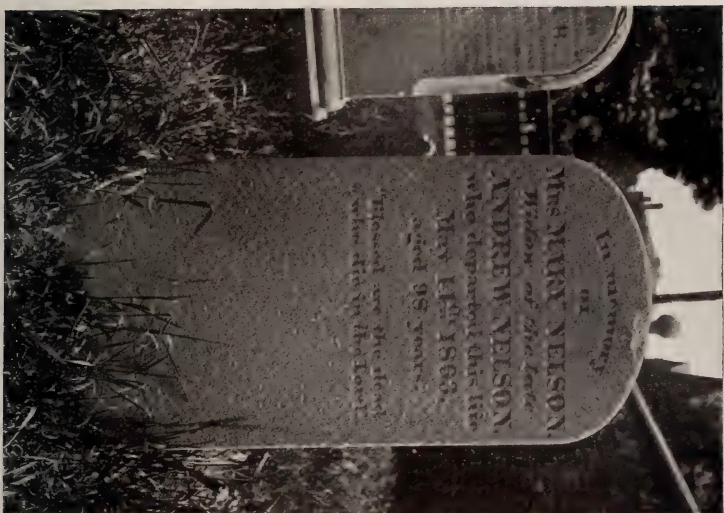 In memory
OF
Mrs MARY NELSON,
Widow of the Late
ANDREW NELSON
who departed this life
May 14th 1863,
aged 98 years.
"Blessed are the dead
who die in the Lord."